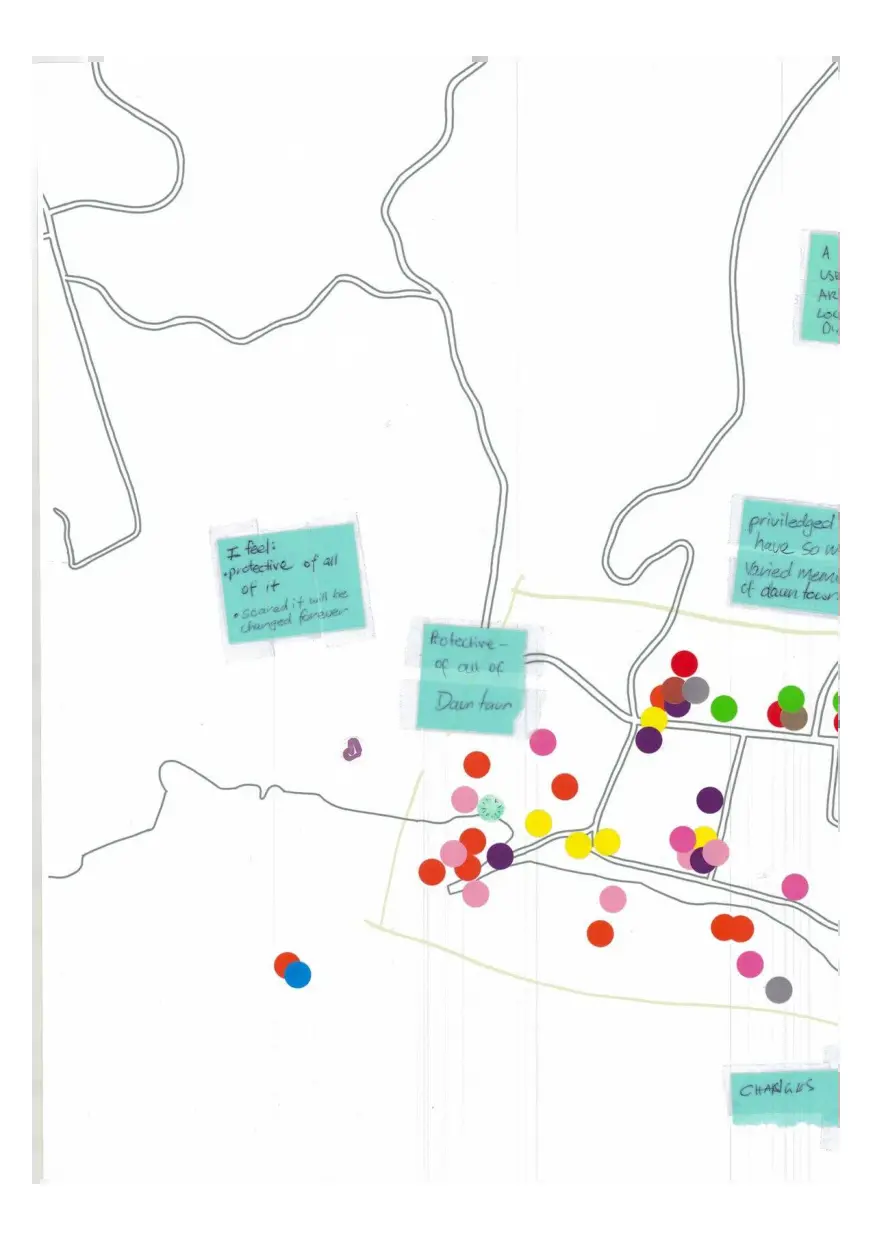 A
USE
AR
LOU
DI
priviledged
have so m
Varied mem
of dauntown
I feel:
• protective of all
of it
• scared it will be
changed forever
Protective –
of all of
Dauntaun
CHANGES